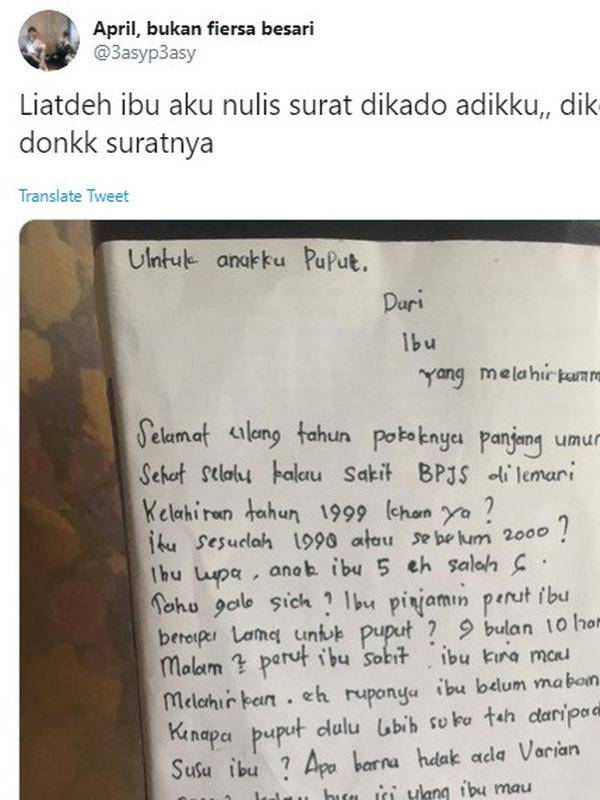 April, bukan fiersa besari
@3asyp3asy
Liatdeh ibu aku nulis surat dikado adikku,, dik
donkk suratnya
Translate Tweet
Untuk anakku Puput.
Dari
Ibu
yang melahirkanm
Selamat ulang tahun pokoknya panjang umur
Sehat selalu kalau sakit BPJS dilemari
Kelahiran tahun 1999 kan ya?
itu sesudah 1998 atau sebelum 2000?
Ibu lupa, anak ibu 5 eh salah 6.
Tahu galo sich? Ibu pinjamin perut ibu
berapa lama untuk puput? 9 bulan 10 har
Malam 2 perut ibu sakit. ibu kira mau
Melahirkan. eh rupanya ibu belum makan
Kenapa puput dulu lebih suka teh daripad
Susu ibu? Apa karna tidak ada Varian
bisa isi ulang ibu mau